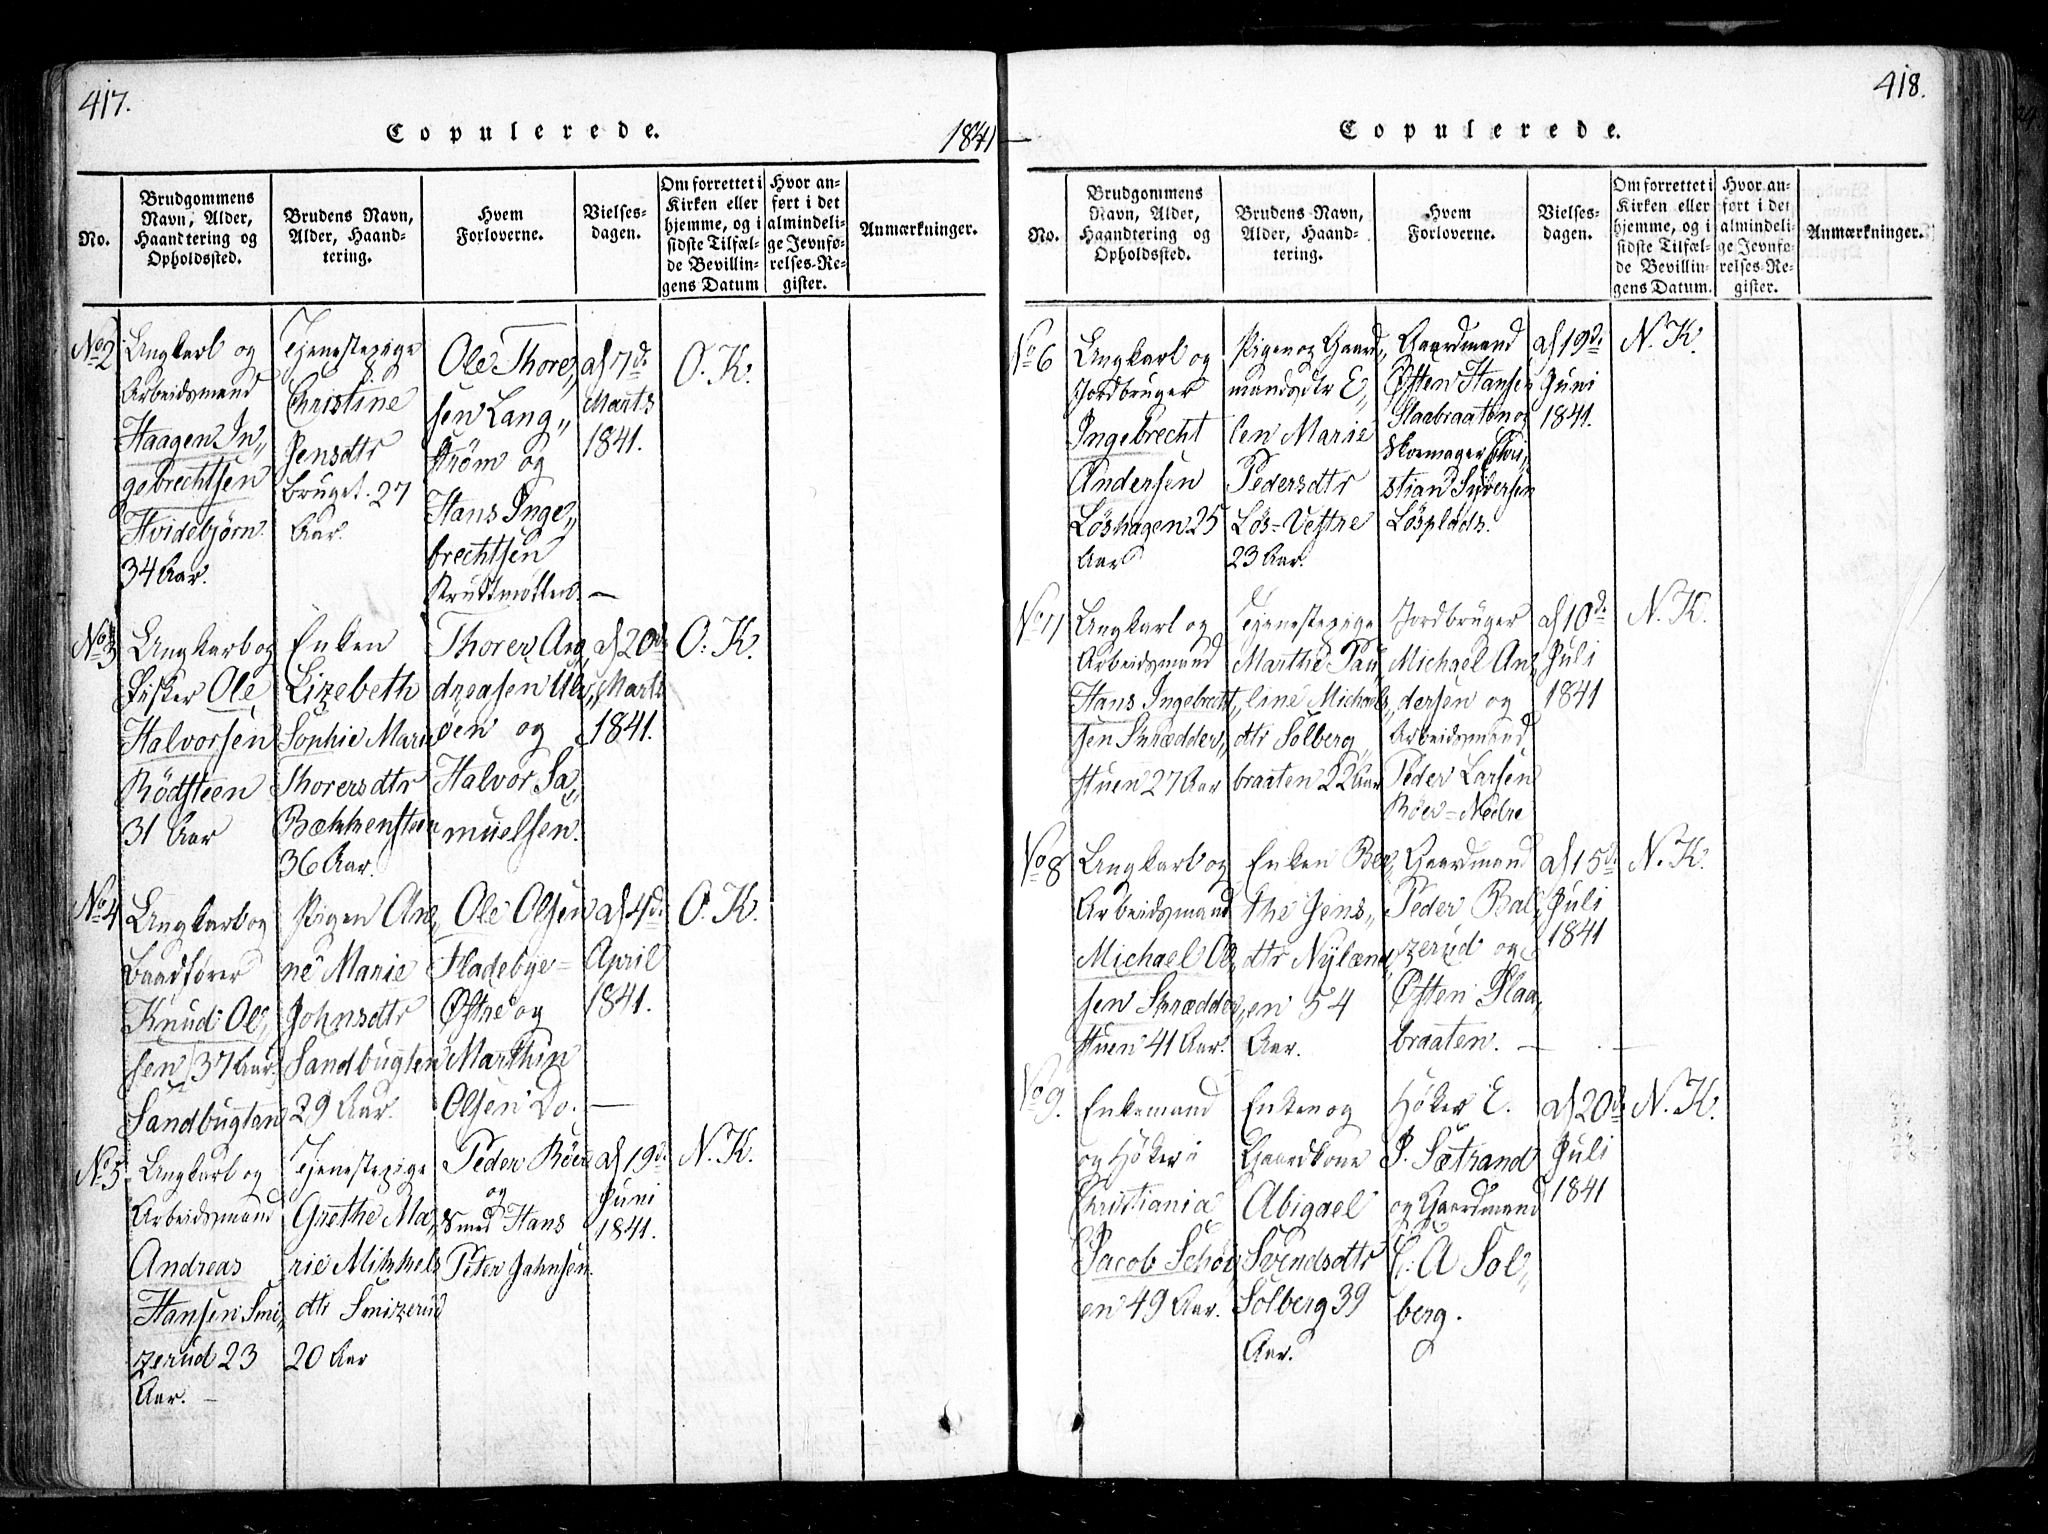 417.
Copulerede.
1841
No.
Brudgommens
Navn, Alder,
Haandtering og
Opholdssted.
Brudens Navn,
Alder, Haand-
tering.
Hvem
Forloverne.
Vielses-
dagen.
Om forrettet i
Kirken eller
hjemme, og i
sidste Tilfæl-
de Bevillin-
gens Datum
Hvor an-
ført i det
almindeli-
ge Jevnfø-
relses-Re-
gister.
Anmærkninger.
No 2
Ungkarl og
Arbeidsmand
Haagen In„
gebrechtsen
Hvidebjørn
34 Aar.
Tjenestepige
Christine
Jensdtr
Bruget. 27
Aar.
Ole Thore„
sen Lang„
strøm og
Hans Inge„
brechtsen
Krudtmøllen. —
d 7de
Marts
1841.
O. K.
No 3
Ungkarl og
Fisker Ole
Halvorsen
Rödsteen
31 Aar
Enken
Lizebeth
Sophie Marie
Thorersdtr
Bækkensteen
36 Aar.
Thorer An„
dreasen
öen og
Halvor Sa„
muelsen.
d 20de
Marts
1841.
O. K.
No 4
Ungkarl og
Baadfører
Knud Ol„
sen 37 Aar
Sandbugten
Pigen Ane„
ne Marie
Johnsdtr
Sandbugten
29 Aar.
Ole Olsen
Fladebye=
Østre og
Marthin
Olsen Do. —
d 4de
April
1841.
O. K.
No 5
Ungkarl og
Arbeidsmand
Andreas
Hansen Smi„
zerud 23
Aar. —
Tjenestepige
Grethe Ma„
rie Mikkels
dtr Smizerud
20 Aar
Peder Röer
og
Smed Hans
Peter Jahnsen.
d 19de
Juni
1841.
N. K.
418.
Copulerede.
No.
Brudgommens
Navn, Alder,
Haandtering og
Opholdssted.
Brudens Navn,
Alder, Haand-
tering.
Hvem
Forloverne.
Vielses-
dagen.
Om forrettet i
Kirken eller
hjemme, og i
sidste Tilfæl-
de Bevillin-
gens Datum.
Hvor an-
ført i det
almindeli-
ge Jevnfø-
relses-Re-
gister.
Anmærkninger.
No 6
Ungkarl og
Jordbruger
Ingebrecht
Andersen
Löshagen 25
Aar
Pigen og Gaard„
mandsdtr E„
len Marie
Pedersdtr
Lös=Vestre
23 Aar.
Gaardmand
Østen Hansen
Slaabraaten og
Skomager Chri„
stian Syversen
Lösplads.
d 19de
Juni
1841.
N. K.
Ungkarl og
Arbeidsmand
Hans Ingebrecht„
sen Skrædder„
stuen 27 Aar
Tjenestepige
Marthe Pau„
line Michaels„
dtr Solberg„
braaten 22 Aar
Jordbruger
Michael An„
dersen og
Arbeidsmand
Peder Larsen
Röer=Nedre
d 10de
Juli
1841
N. K.
No 8
Ungkarl og
Arbeidsmand
Michael Ol„
sen Skrædder„
stuen 41 Aar.
Enken Ber„
the Jens„
dtr Nylænd„
en 54
Aar.
Gaardmand
Peder Bal„
zerud og
Østen Slaa„
braaten. —
d 15de
Juli
1841
N. K.
No 9.
Enkemand
og Höker i
Christiania
Jacob Schöy„
en 49 Aar.
Enken og
Gaardkone
Abigael
Svendsdtr
Solberg 39
Aar.
Höker E.
P. Sætrand
og Gaardmand
A Sol„
berg.
d 20de
Juli
1841
N. K.